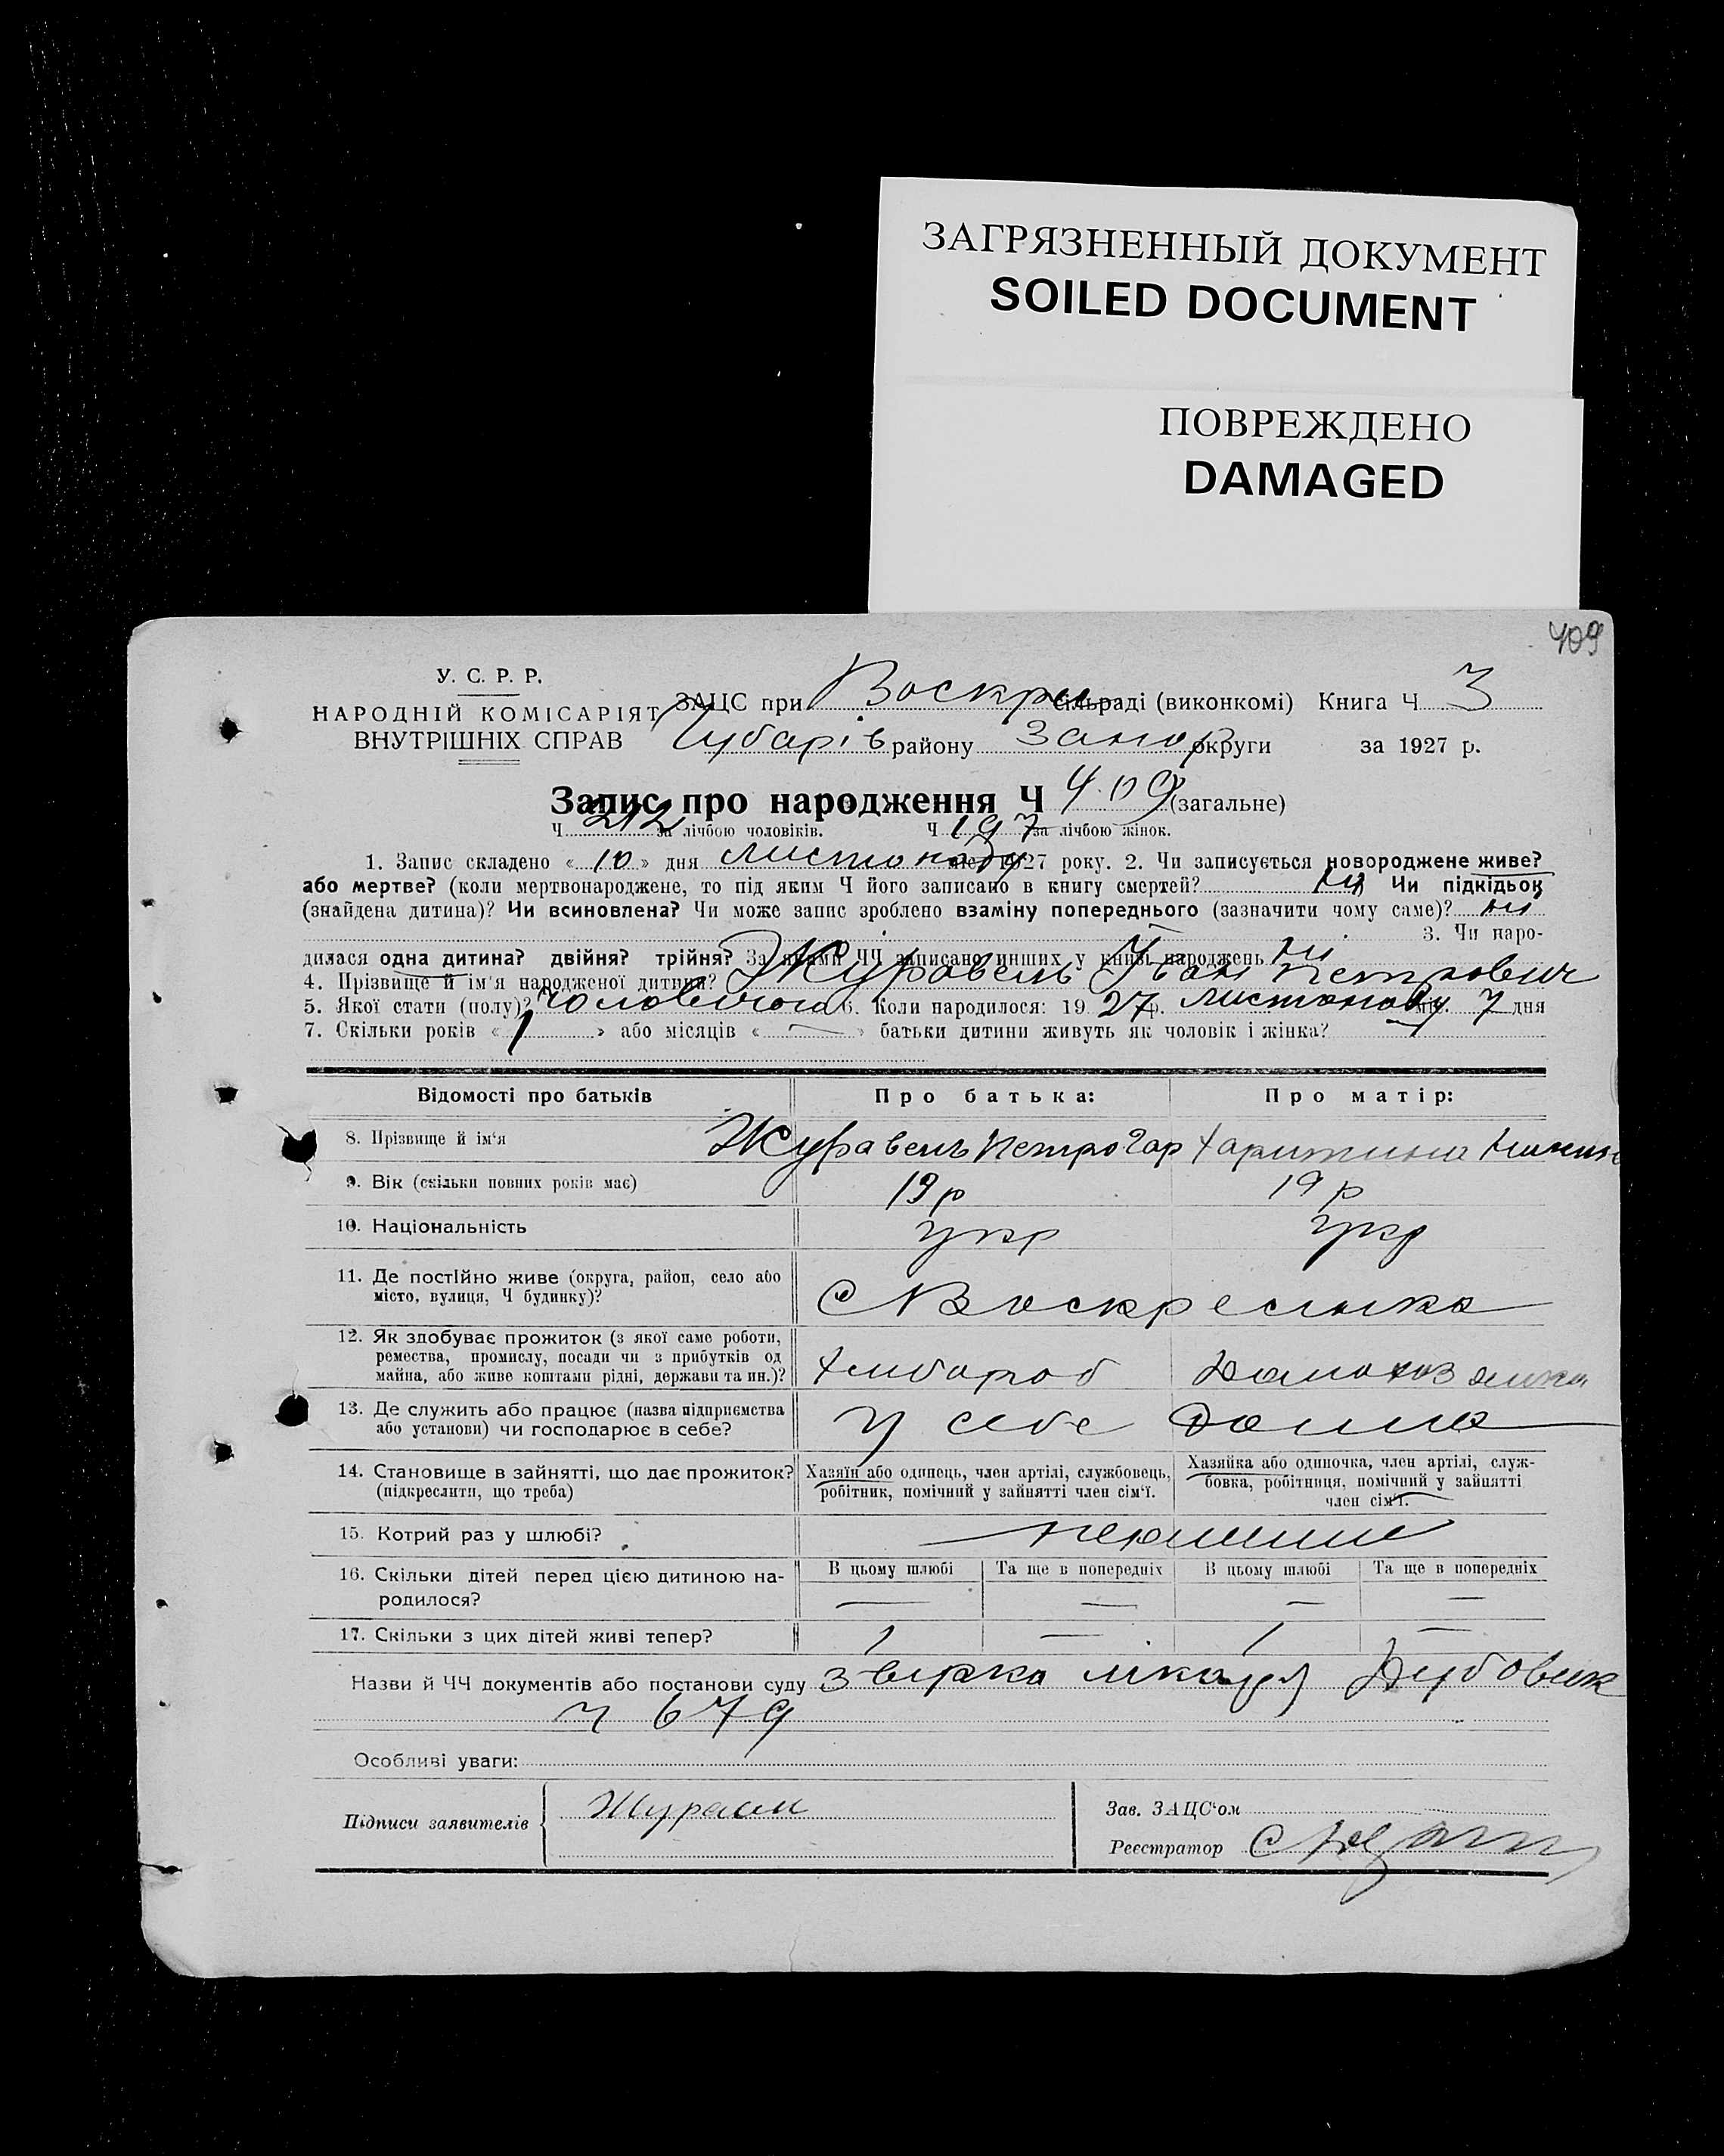 ЗАГРЯЗНЕННЫЙ ДОКУМЕНТ
SOILED DOCUMENT
ПОВРЕЖДЕНО
DAMAGED
409
У. С. Р. Р.
НАРОДНІЙ КОМІСАРІЯТ
ВНУТРІШНІХ СПРАВ
ЗАЦС при Воскре сільраді (виконкомі) Книга Ч 3
Чубарів району Запор округи за 1927 р.
Запис про народження Ч 409 (загальне)
Ч 212 за лічбою чоловіків. Ч 197 за лічбою жінок.
1. Запис складено « 10 » дня листопаду міс. 1927 року. 2. Чи записується новороджене живе?
або мертве? (коли мертвонароджене, то під яким Ч його записано в книгу смертей? ні Чи підкідьок
(знайдена дитина)? Чи всиновлена? Чи може запис зроблено взаміну попереднього (зазначити чому саме)? ні
3. Чи наро-
дилася одна дитина? двійня? трійня? За якими ЧЧ записано инших у книзі народжень ні
4. Прізвище й ім'я народженої дитини? Журавель Іван Петрович
5. Якої стати (полу)? чоловічого 6. Коли народилося: 19 27 р. листопаду міс. 7 дня
7. Скільки років « 1 » або місяців « — » батьки дитини живуть як чоловік і жінка?
Відомості про батьків Про батька: Про матір:
8. Прізвище й ім'я Журавель Петро Гар Харитина
9. Вік (скільки повних років має) 19 р 19 р
10. Національність укр укр
11. Де постійно живе (округа, район, село або
місто, вулиця, Ч будинку)? С Воскресенка
12. Як здобуває прожиток (з якої саме роботи,
ремества, промислу, посади чи з прибутків од
майна, або живе коштами рідні, держави та ин.)? хлібороб Домохозяйка
13. Де служить або працює (назва підприємства
або установи) чи господарює в себе? У себе дома
14. Становище в зайнятті, що дає прожиток?
(підкреслити, що треба)
Хазяїн або одинець, член артілі, службовець,
робітник, помічний у зайнятті член сім'ї.
Хазяйка або одиночка, член артілі, служ-
бовка, робітниця, помічний у зайнятті
член сім'ї.
15. Котрий раз у шлюбі?
16. Скільки дітей перед цією дитиною на-
родилося?
В цьому шлюбі Та ще в попередніх В цьому шлюбі Та ще в попередніх
— — — —
17. Скільки з цих дітей живі тепер? 1 — 1 —
Назви й ЧЧ документів або постанови суду
ч 679
Особливі уваги:
Підписи заявителів
Зав. ЗАЦС'ом
Реєстратор